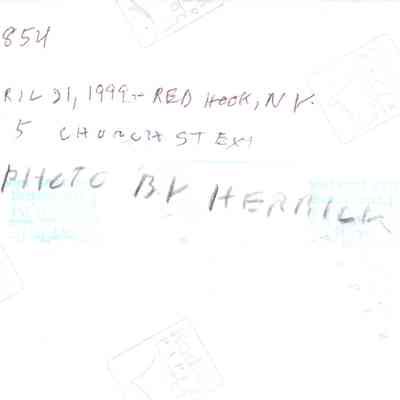 854
RIL 21, 1999 - RED HOOK, N Y.
5 CHURCH ST EXT
PHOTO BY HERRICK